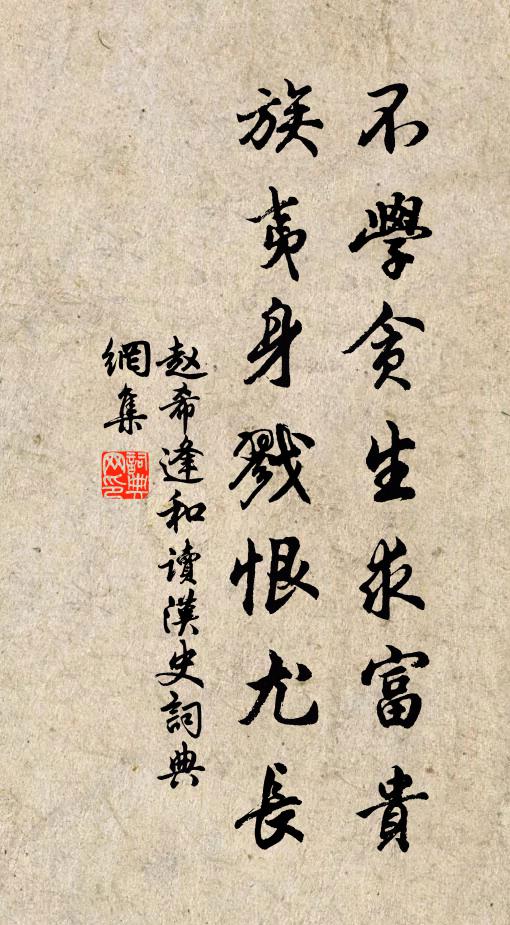 不學貪生求富貴
族夷身戮恨尤長
赵希逢和讀漢史詞典
網集
詞典
网印